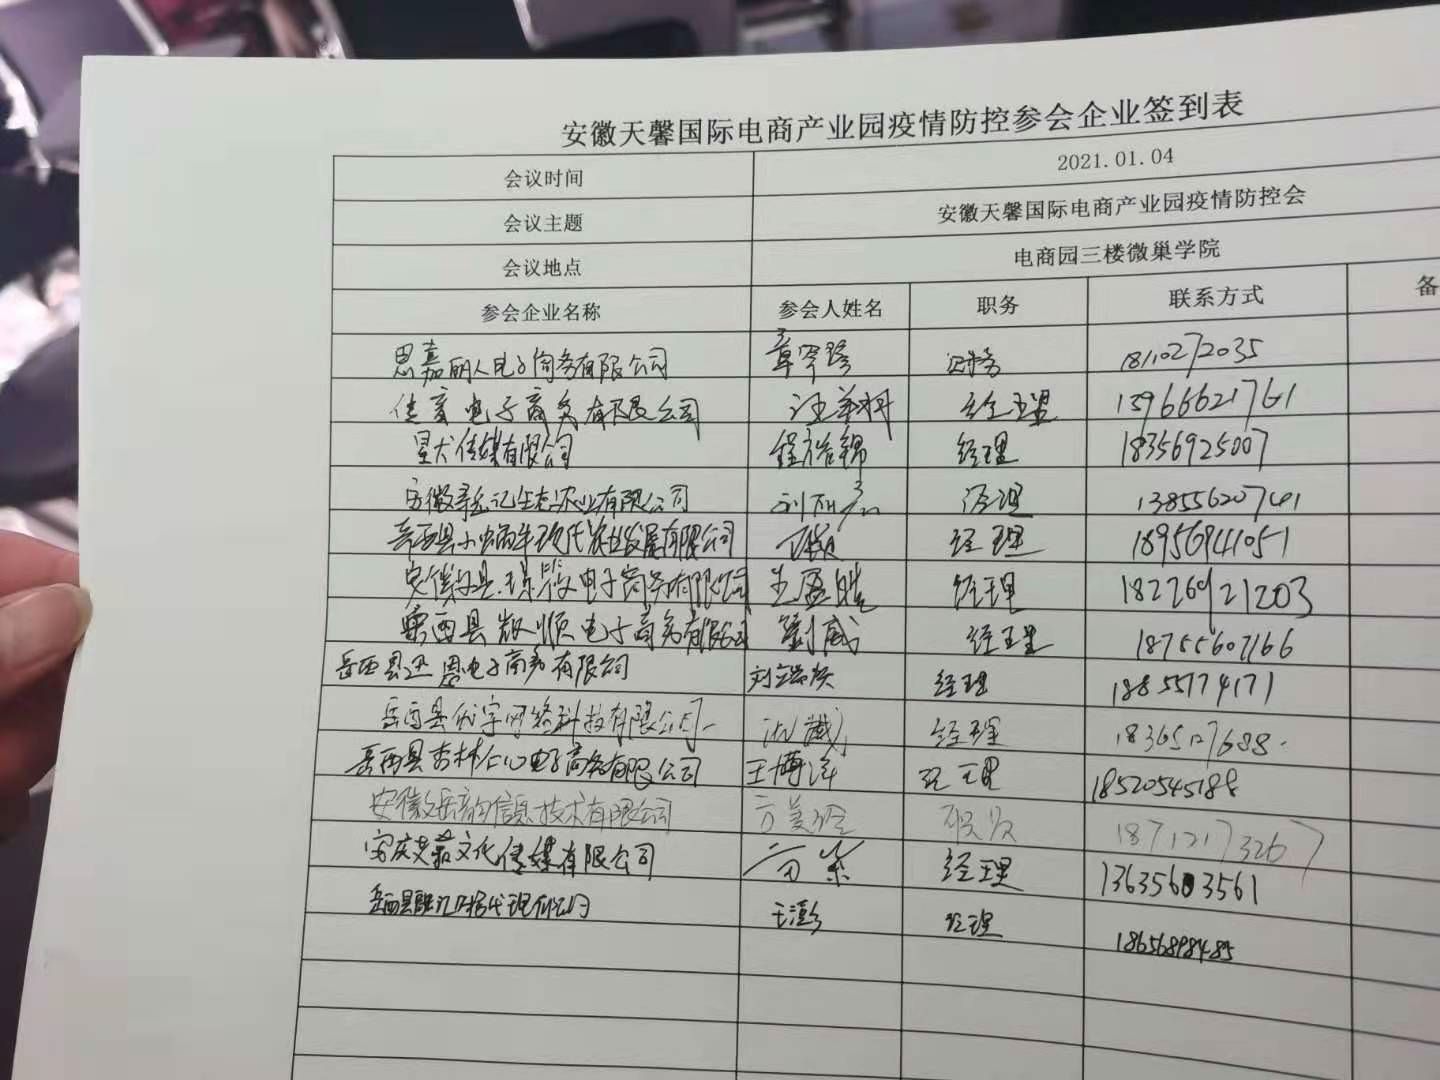 安徽天馨国际电商产业园疫情防控参会企业签到表
会议时间 2021.01.04
会议主题 安徽天馨国际电商产业园疫情防控会
会议地点 电商园三楼微巢学院
参会企业名称 参会人姓名 职务 联系方式 备
思嘉丽人电子商务有限公司 财务 18110272035
电子商务有限公司 经理 15966621761
星犬传媒有限公司 经理 18356925007
安徽寻岳记生态农业有限公司 经理 13855620741
岳西县小蜗牛现代农业发展有限公司 经理 18956941051
电子商务有限公司 王盈皓 经理 18226921203
岳西县凯顺电子商务有限公司 劉威 经理 18755607166
岳西县迅恩电子商务有限公司 经理 18855174171
岳西县优宇网络科技有限公司 经理 18365127688
岳西县杏林仁心电子商务有限公司 王博洋 经理 18520545188
安徽岳韵信息技术有限公司 方美玲 18712173267
安庆艾茹文化传媒有限公司 方荣 经理 13635603561
岳西县 代理有限公司 王澎 经理 18656898485